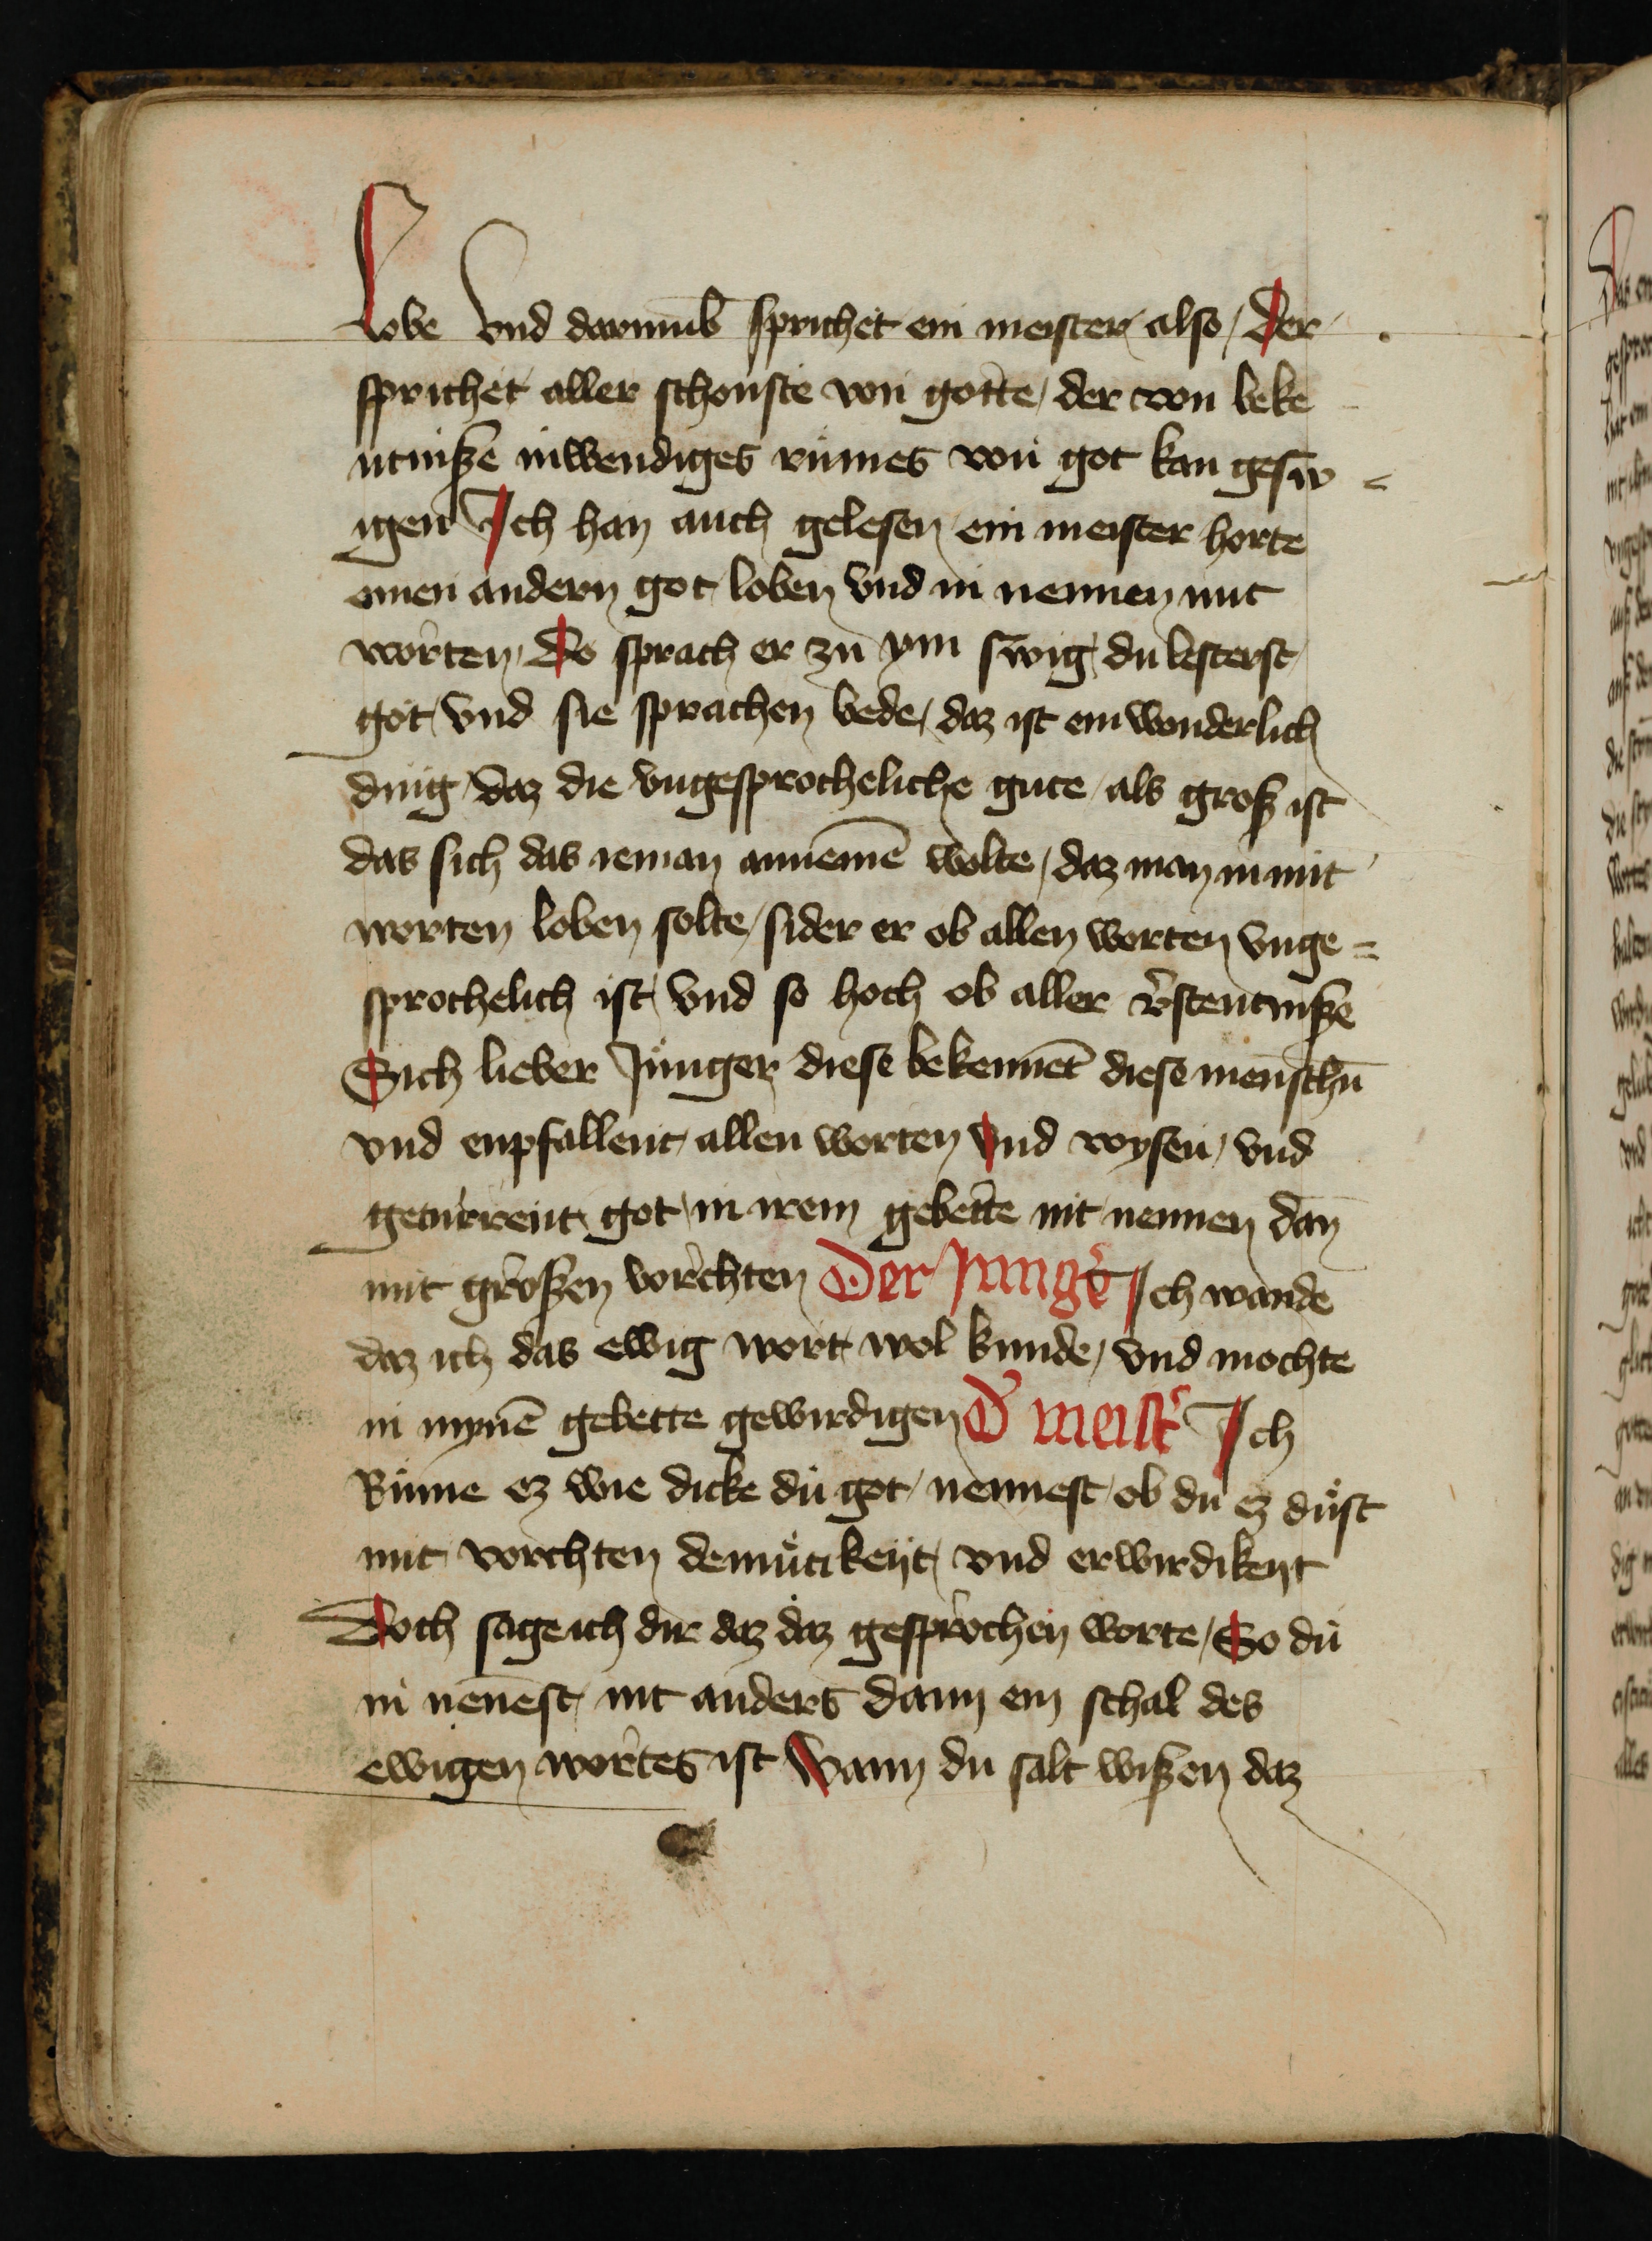 Lobe Vnd darumb̄ sprichet ein meister also / Der
sprichet aller schonste von gotte / der von beke
ntniße inwendiges rumes von got kan gesw
igen Ich han auch gelesen ein meister horte
einen andern got loben vnd in nennen mit
worten / Do sprach er zu ym swig du lesterst
got / vnd sie sprachen bede / daz ist ein wonderlich
ding daz die vngesprocheliche gute als groß ist
das sich das ieman annemē wolte / daz man in mit
worten loben solte / sider er ob allen worten vnge =
sprochelich ist / vnd so hoch ob aller v̉stentniße
Sich lieber Junger diese bekennet diese menschn̄
vnd enpfallent allen worten Vnd wysen / vnd
geturrent got in irem gebette nit nennen dan
mit großen vorchten Der Jungẻ Ich wande
daz ich das ewig wort wol kunde / vnd mochte
in mynē gebette gewirdigen D̉ meist̉ Ich
kume ez wie dicke du got nennest ob du ez dust
mit vorchten demutikeyt / vnd erwirdikeyt
Doch sage ich dir daz daz gesprochen worte / So du
in nēnest nit anders dann ein schal des
ewigen wortes ist Wann du salt wißen daz